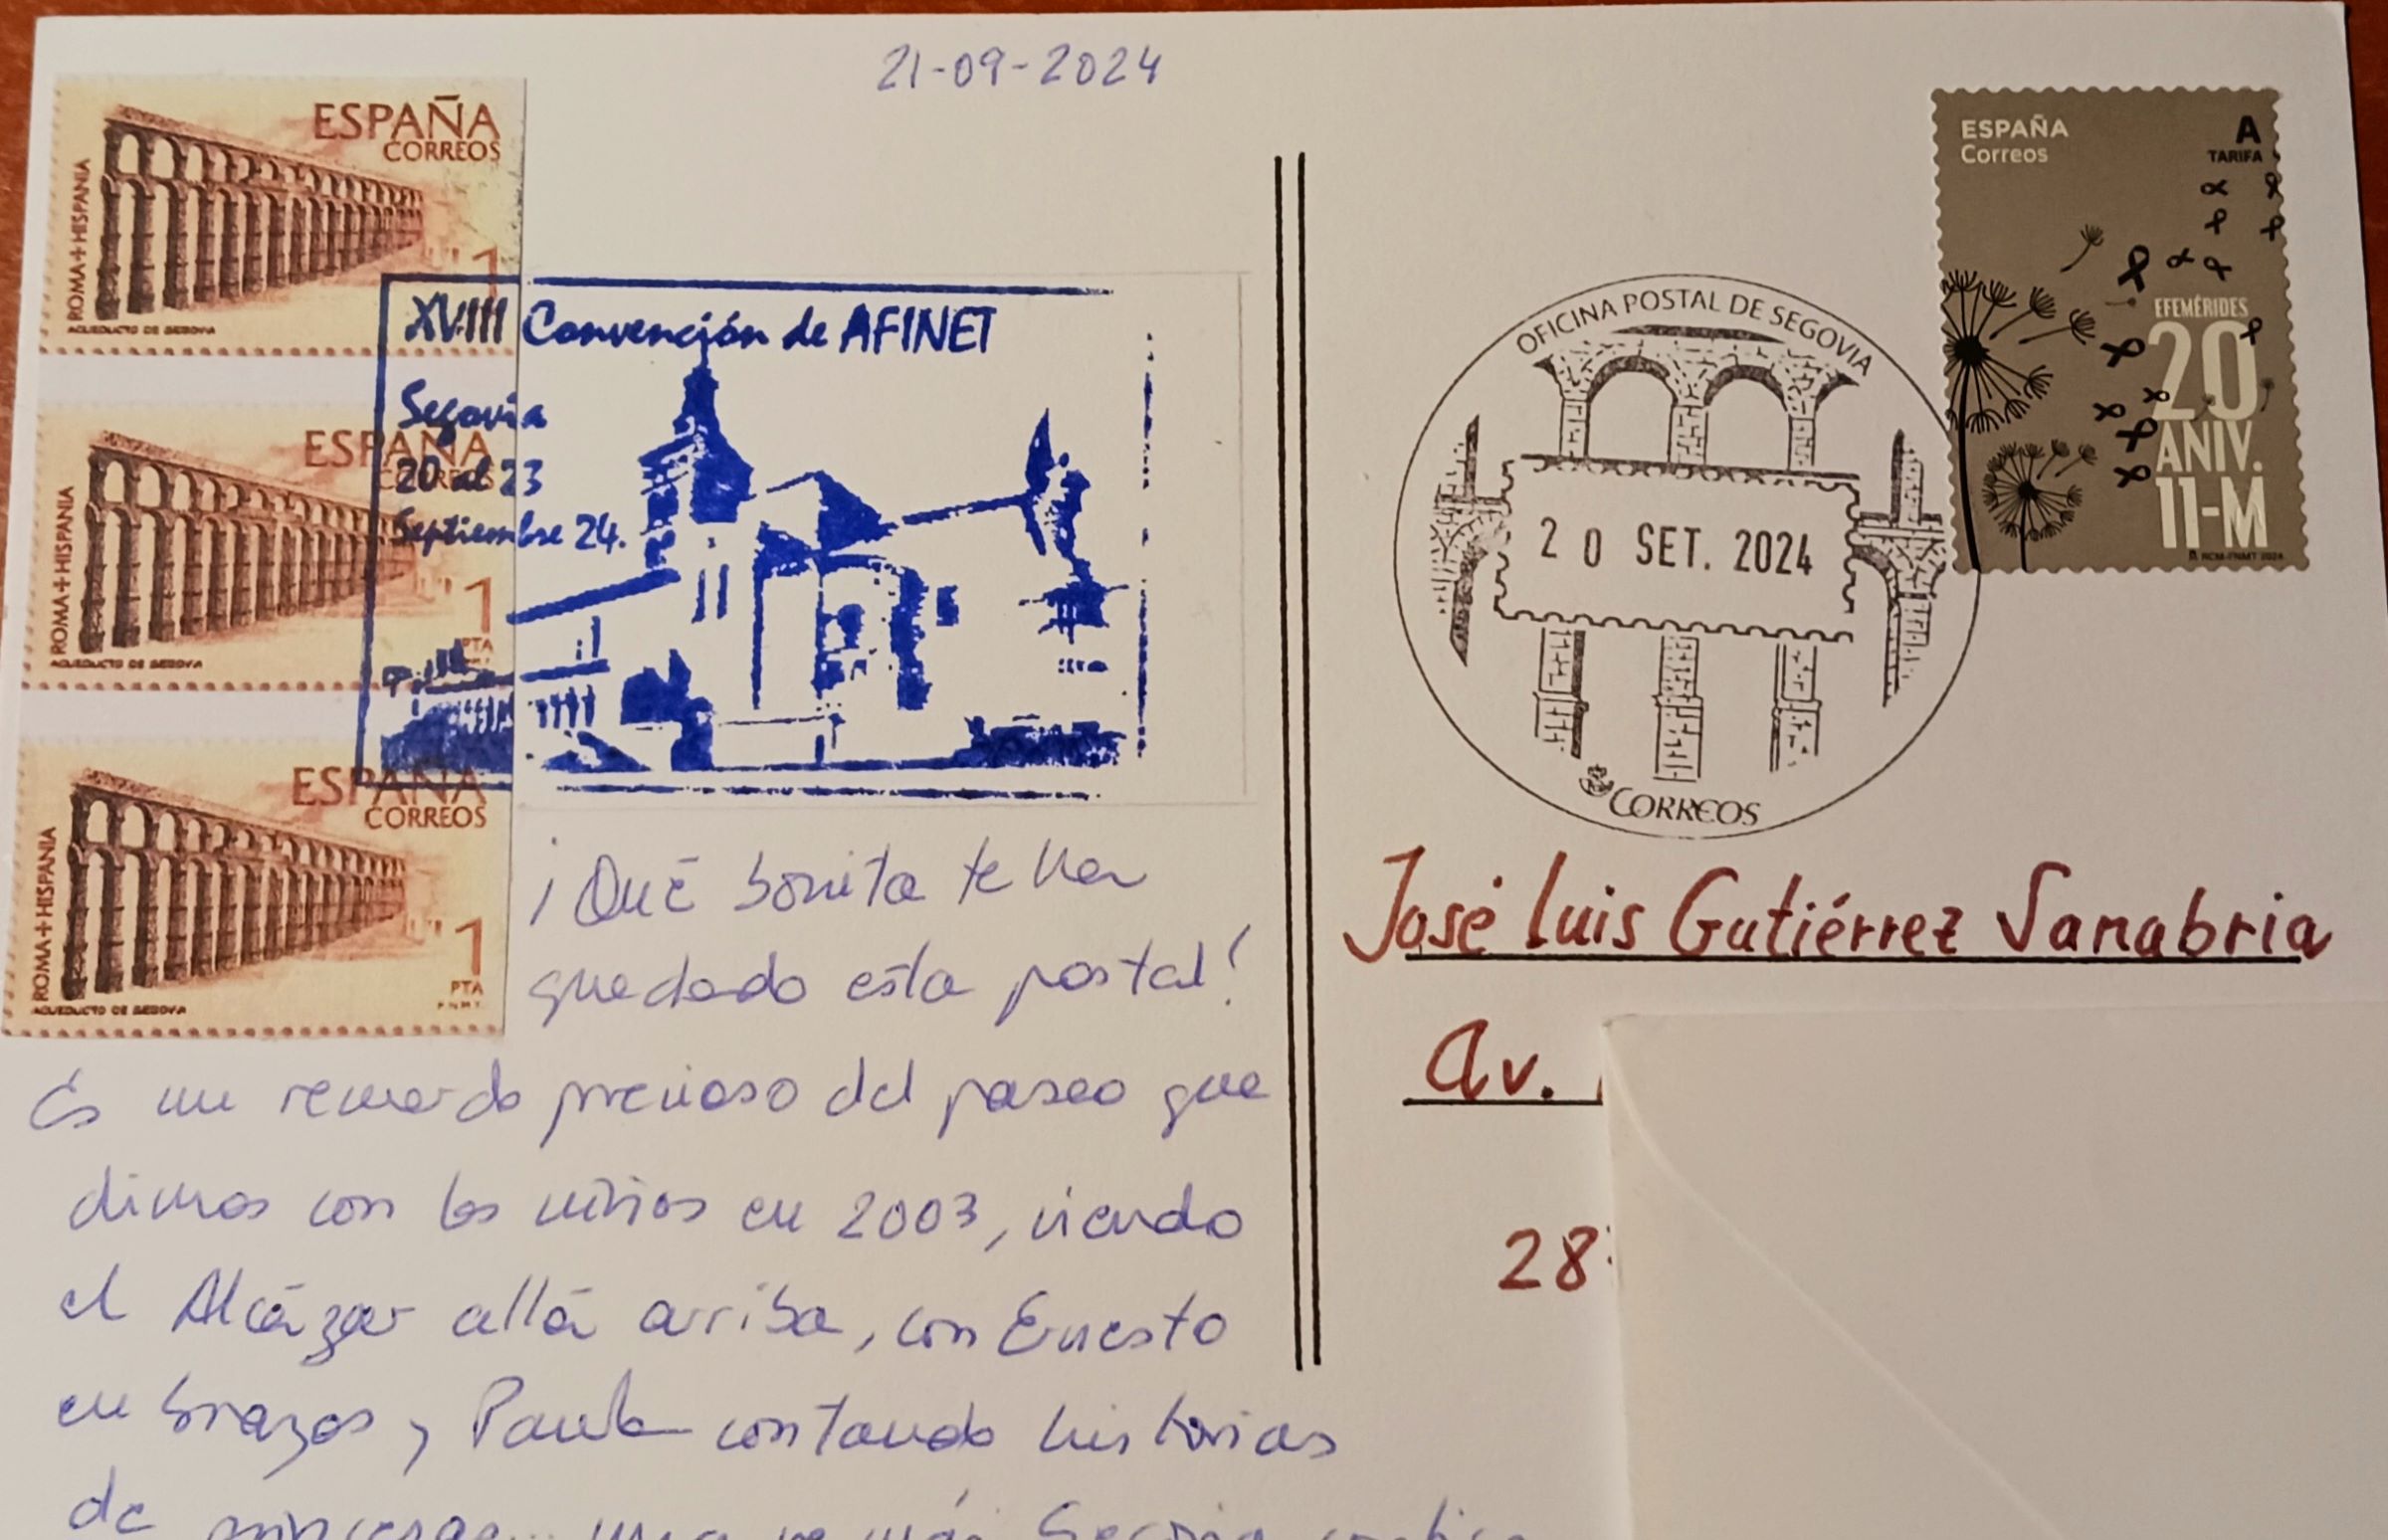 21-09-2024
ESPAÑA
CORREOS
ROMA+HISPANIA
1
ACUEDUCTO DE SEGOVIA
ESPAÑA
CORREOS
ROMA+HISPANIA
1
PTA
ACUEDUCTO DE SEGOVIA
ESPAÑA
CORREOS
ROMA+HISPANIA
1
PTA
F.N.M.T.
ACUEDUCTO DE SEGOVIA
XVIII Convención de AFINET
Segovia
20 al 23
Septiembre 24.
¡Qué bonita te ha
quedado esta postal!
Es un recuerdo precioso del paseo que
dimos con los niños en 2003, viendo
el Alcázar allá arriba, con Ernesto
en brazos y Paula contando historias
de princesas... una vez más Segovia
ESPAÑA
Correos
A
TARIFA
EFEMÉRIDES
20
ANIV.
11-M
RCM-FNMT 2024
OFICINA POSTAL DE SEGOVIA
20 SET. 2024
CORREOS
José Luis Gutiérrez Sanabria
Av.
28